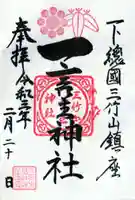 下總國三竹山鎮座
一言主神社
三竹
神社
奉拝
令和三年
二月二十日